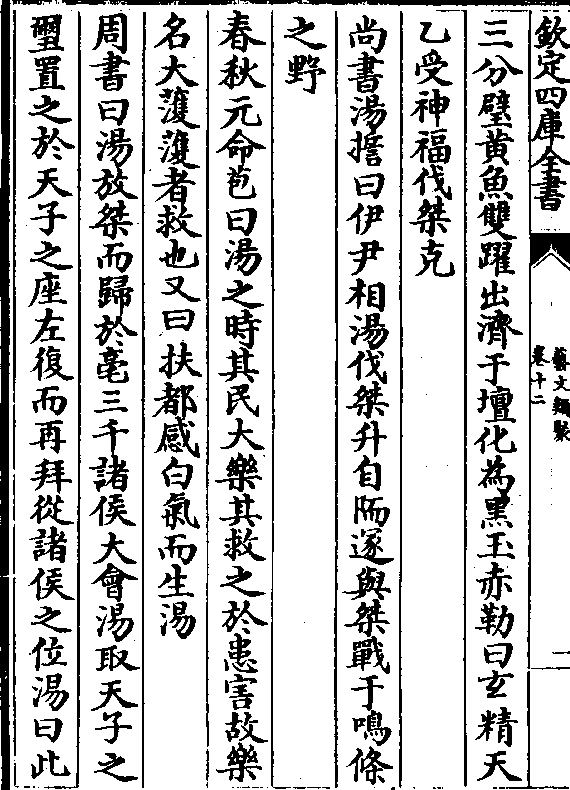 欽定四庫全書
藝文類聚
卷十二
一
三分璧黃魚雙躍出濟于壇化為黑玉赤勒曰玄精天
乙受神福伐桀克
尚書湯誓曰伊尹相湯伐桀升自陑遂與桀戰于鳴條
之野
春秋元命苞曰湯之時其民大樂其救之於患害故樂
名大䕶䕶者救也又曰扶都感白氣而生湯
周書曰湯放桀而歸於亳三千諸侯大會湯取天子之
璽置之於天子之座左復而再拜從諸侯之位湯曰此